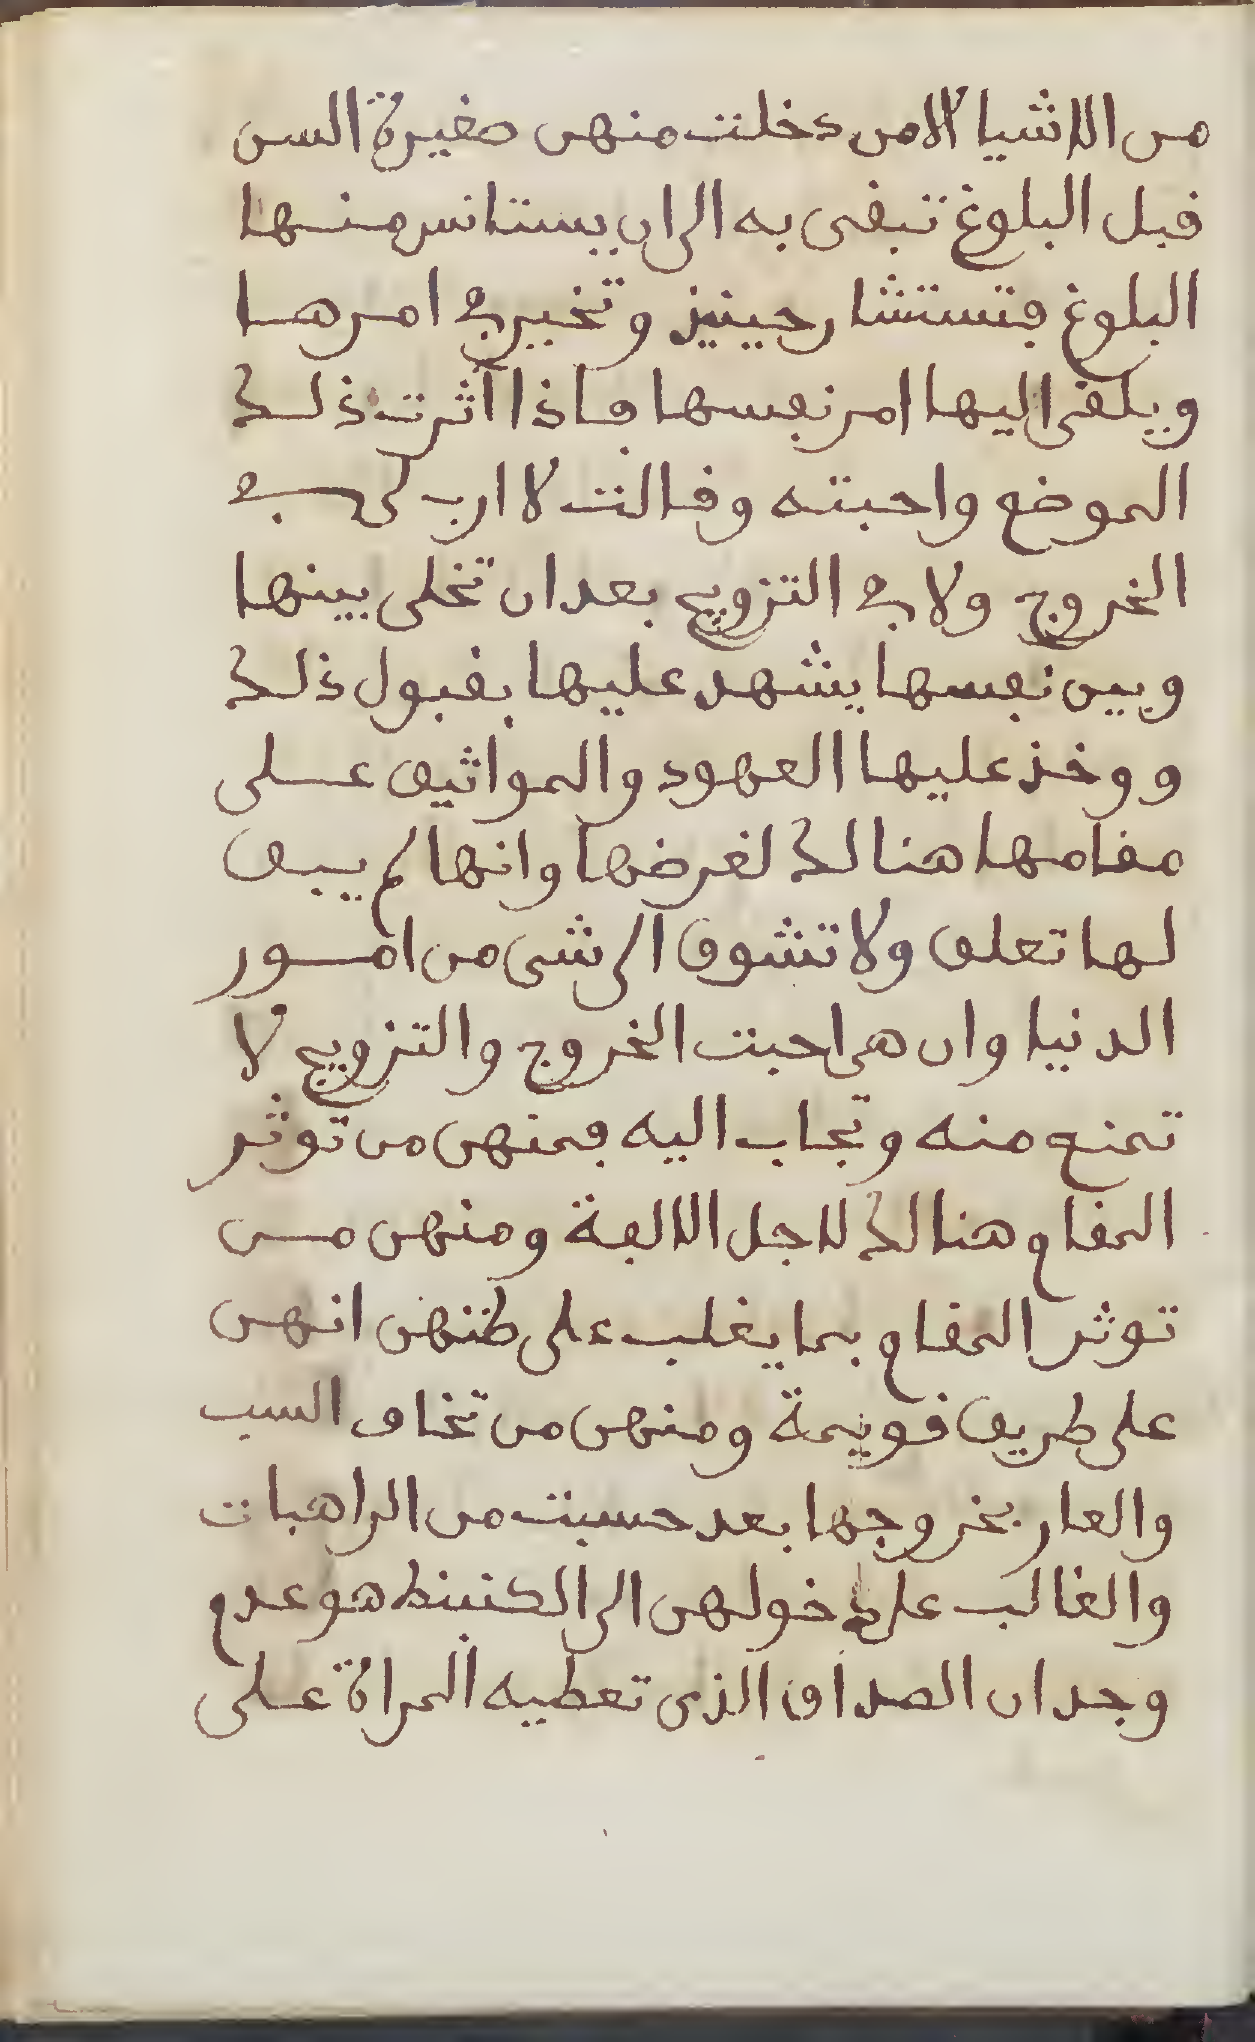 من الاشيا الا من دخلت منهن صغيرة السن
قبل البلوغ تبقى به الى ان يستانس منها
البلوغ فتستشار حينيذ وتخير في امرها
ويلقى اليها امر نفسها فاذا آثرت ذلك
الموضع واحبته وقالت لا ارب لى في
الخروج ولا في التزويج بعد ان تخلى بينها
وبين نفسها يشهد عليها بقبول ذلك
ووخذ عليها العهود والمواثيق على
مقامها هنالك لغرضها وانها لم يبق
لها تعلق ولا تشوق الى شى من امور
الدنيا وان هى احبت الخروج والتزويج لا
تمنع منه وتجاب اليه فمنهن من توثر
المقام هنالك لاجل الالفة ومنهن من
توثر المقام بما يغلب على ظنهن انهن
على طريق قويمة ومنهن من تخاف السب
والعار بخروجها بعد حسبت من الراهبات
والغالب على دخولهن الى الكنبنط هو عدم
وجدان الصداق الذى تعطيه المراة على